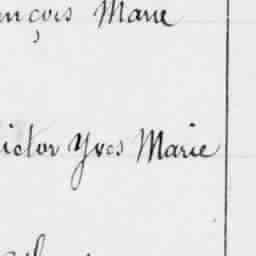 ançois Marie
ictor Yves Marie